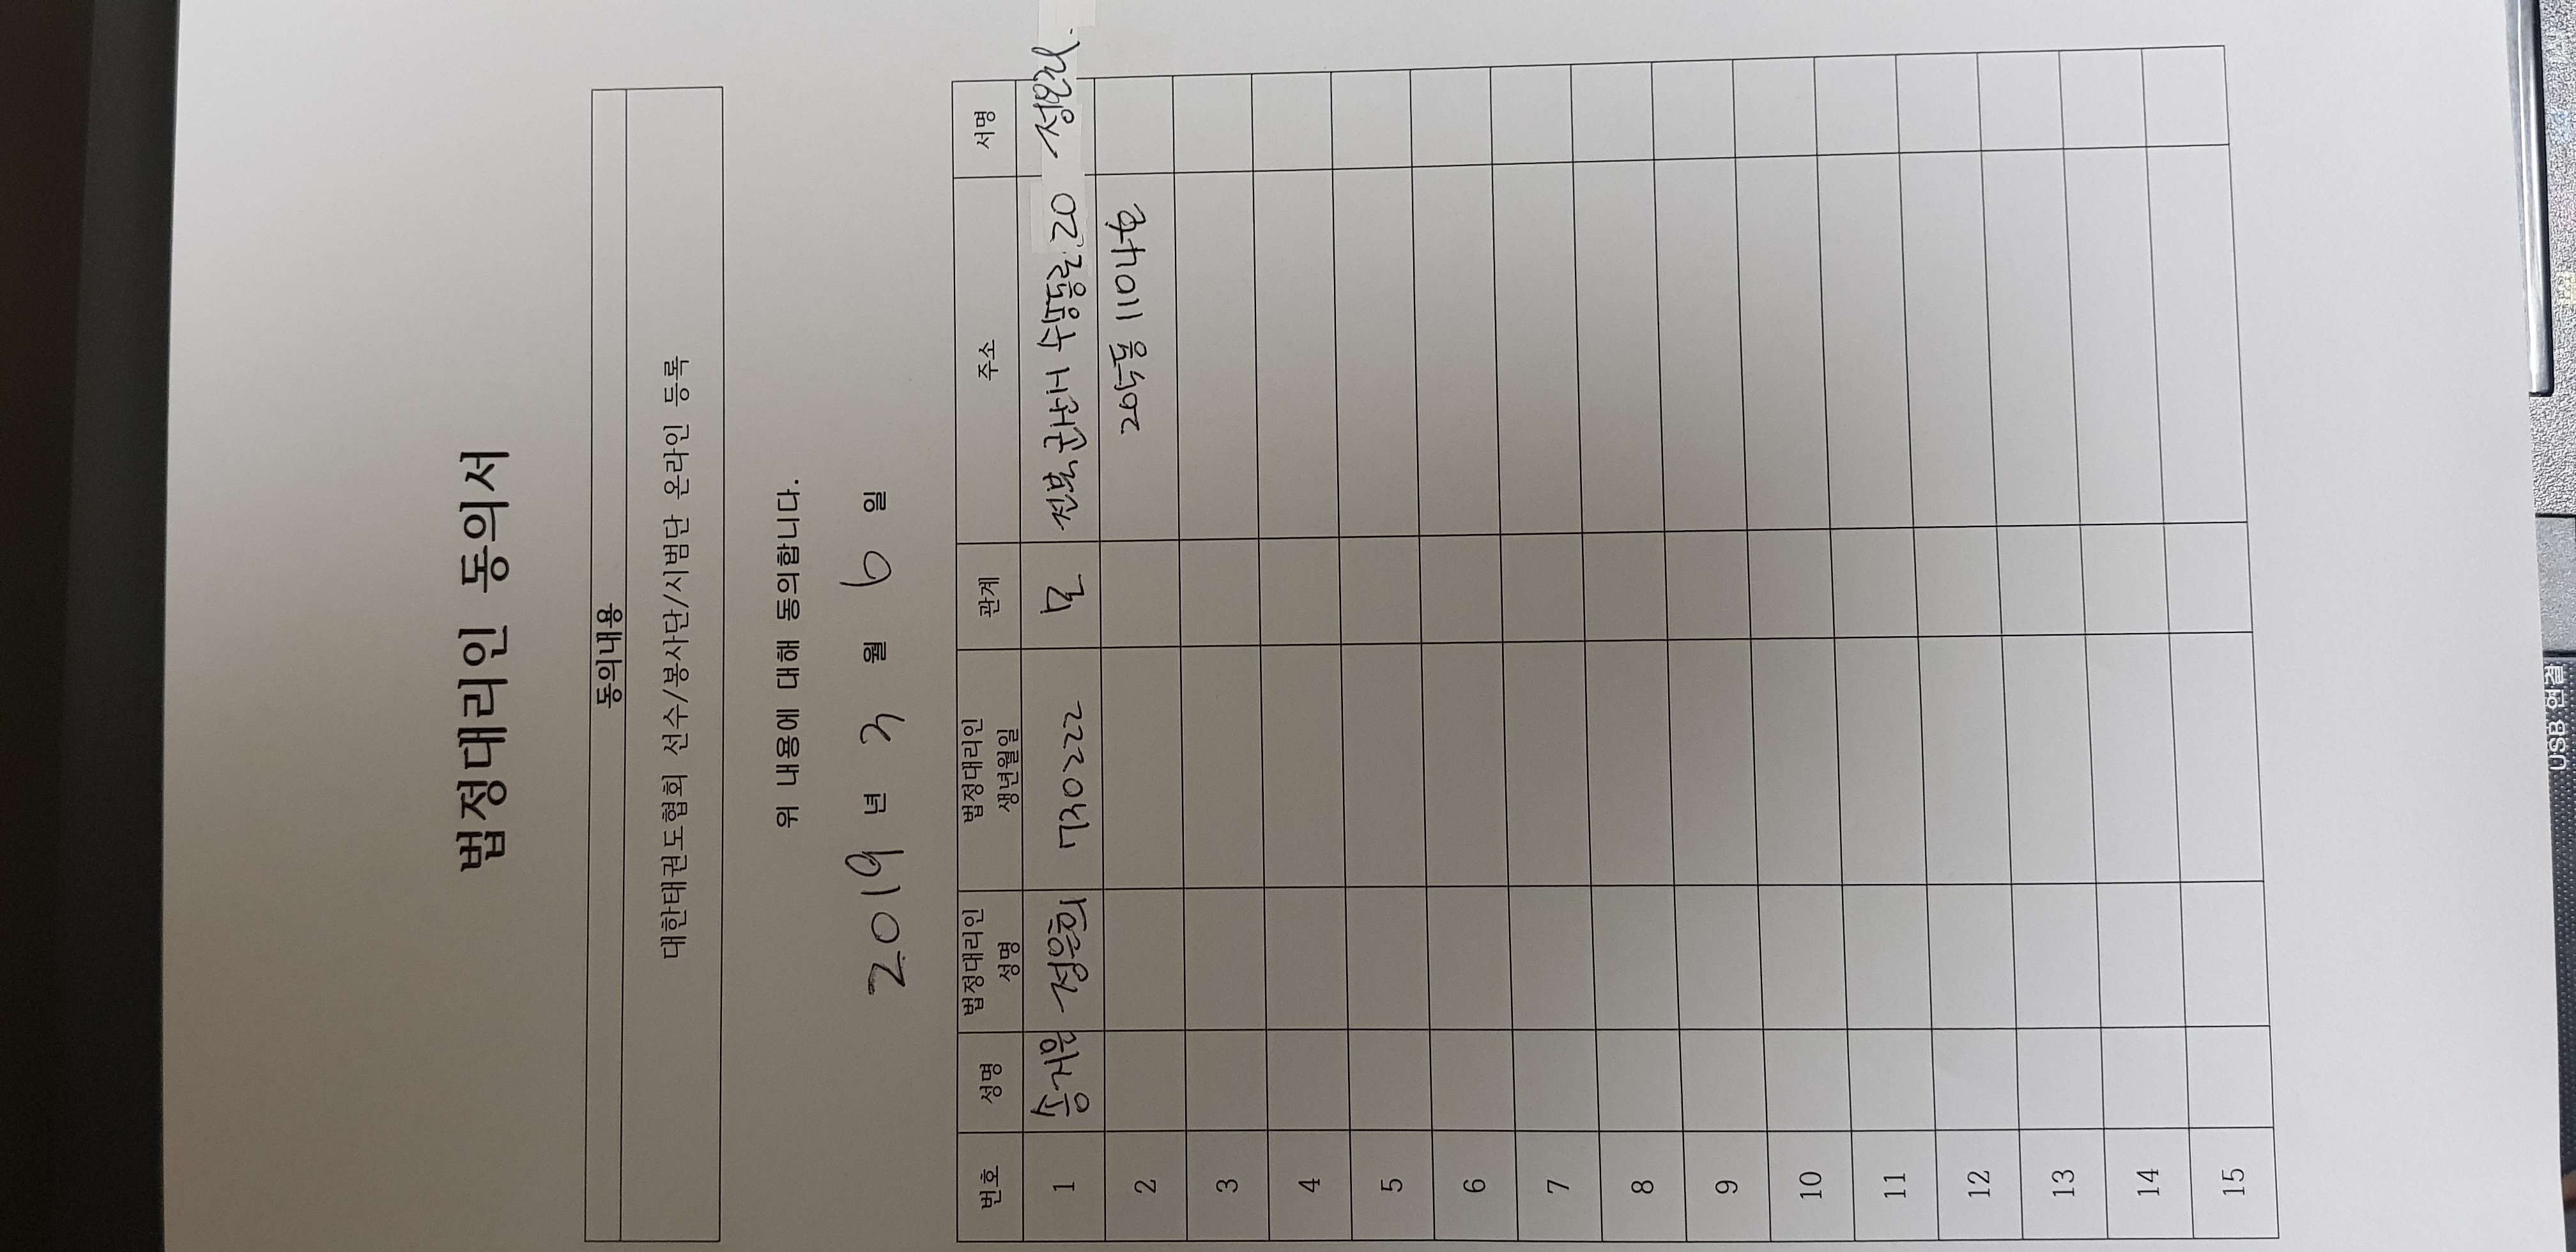 법정대리인 동의서
동의내용
대한태권도협회 선수/봉사단/시범단 온라인 등록
위 내용에 대해 동의합니다.
2019 년 3 월 6 일
번호 성명 법정대리인 성명 법정대리인 생년월일 관계 주소 서명
1 송지윤 정은희 730222 모 전북 군산시 수송동로 20
205동 1104호
2
3
4
5
6
7
8
9
10
11
12
13
14
15
USB 연결